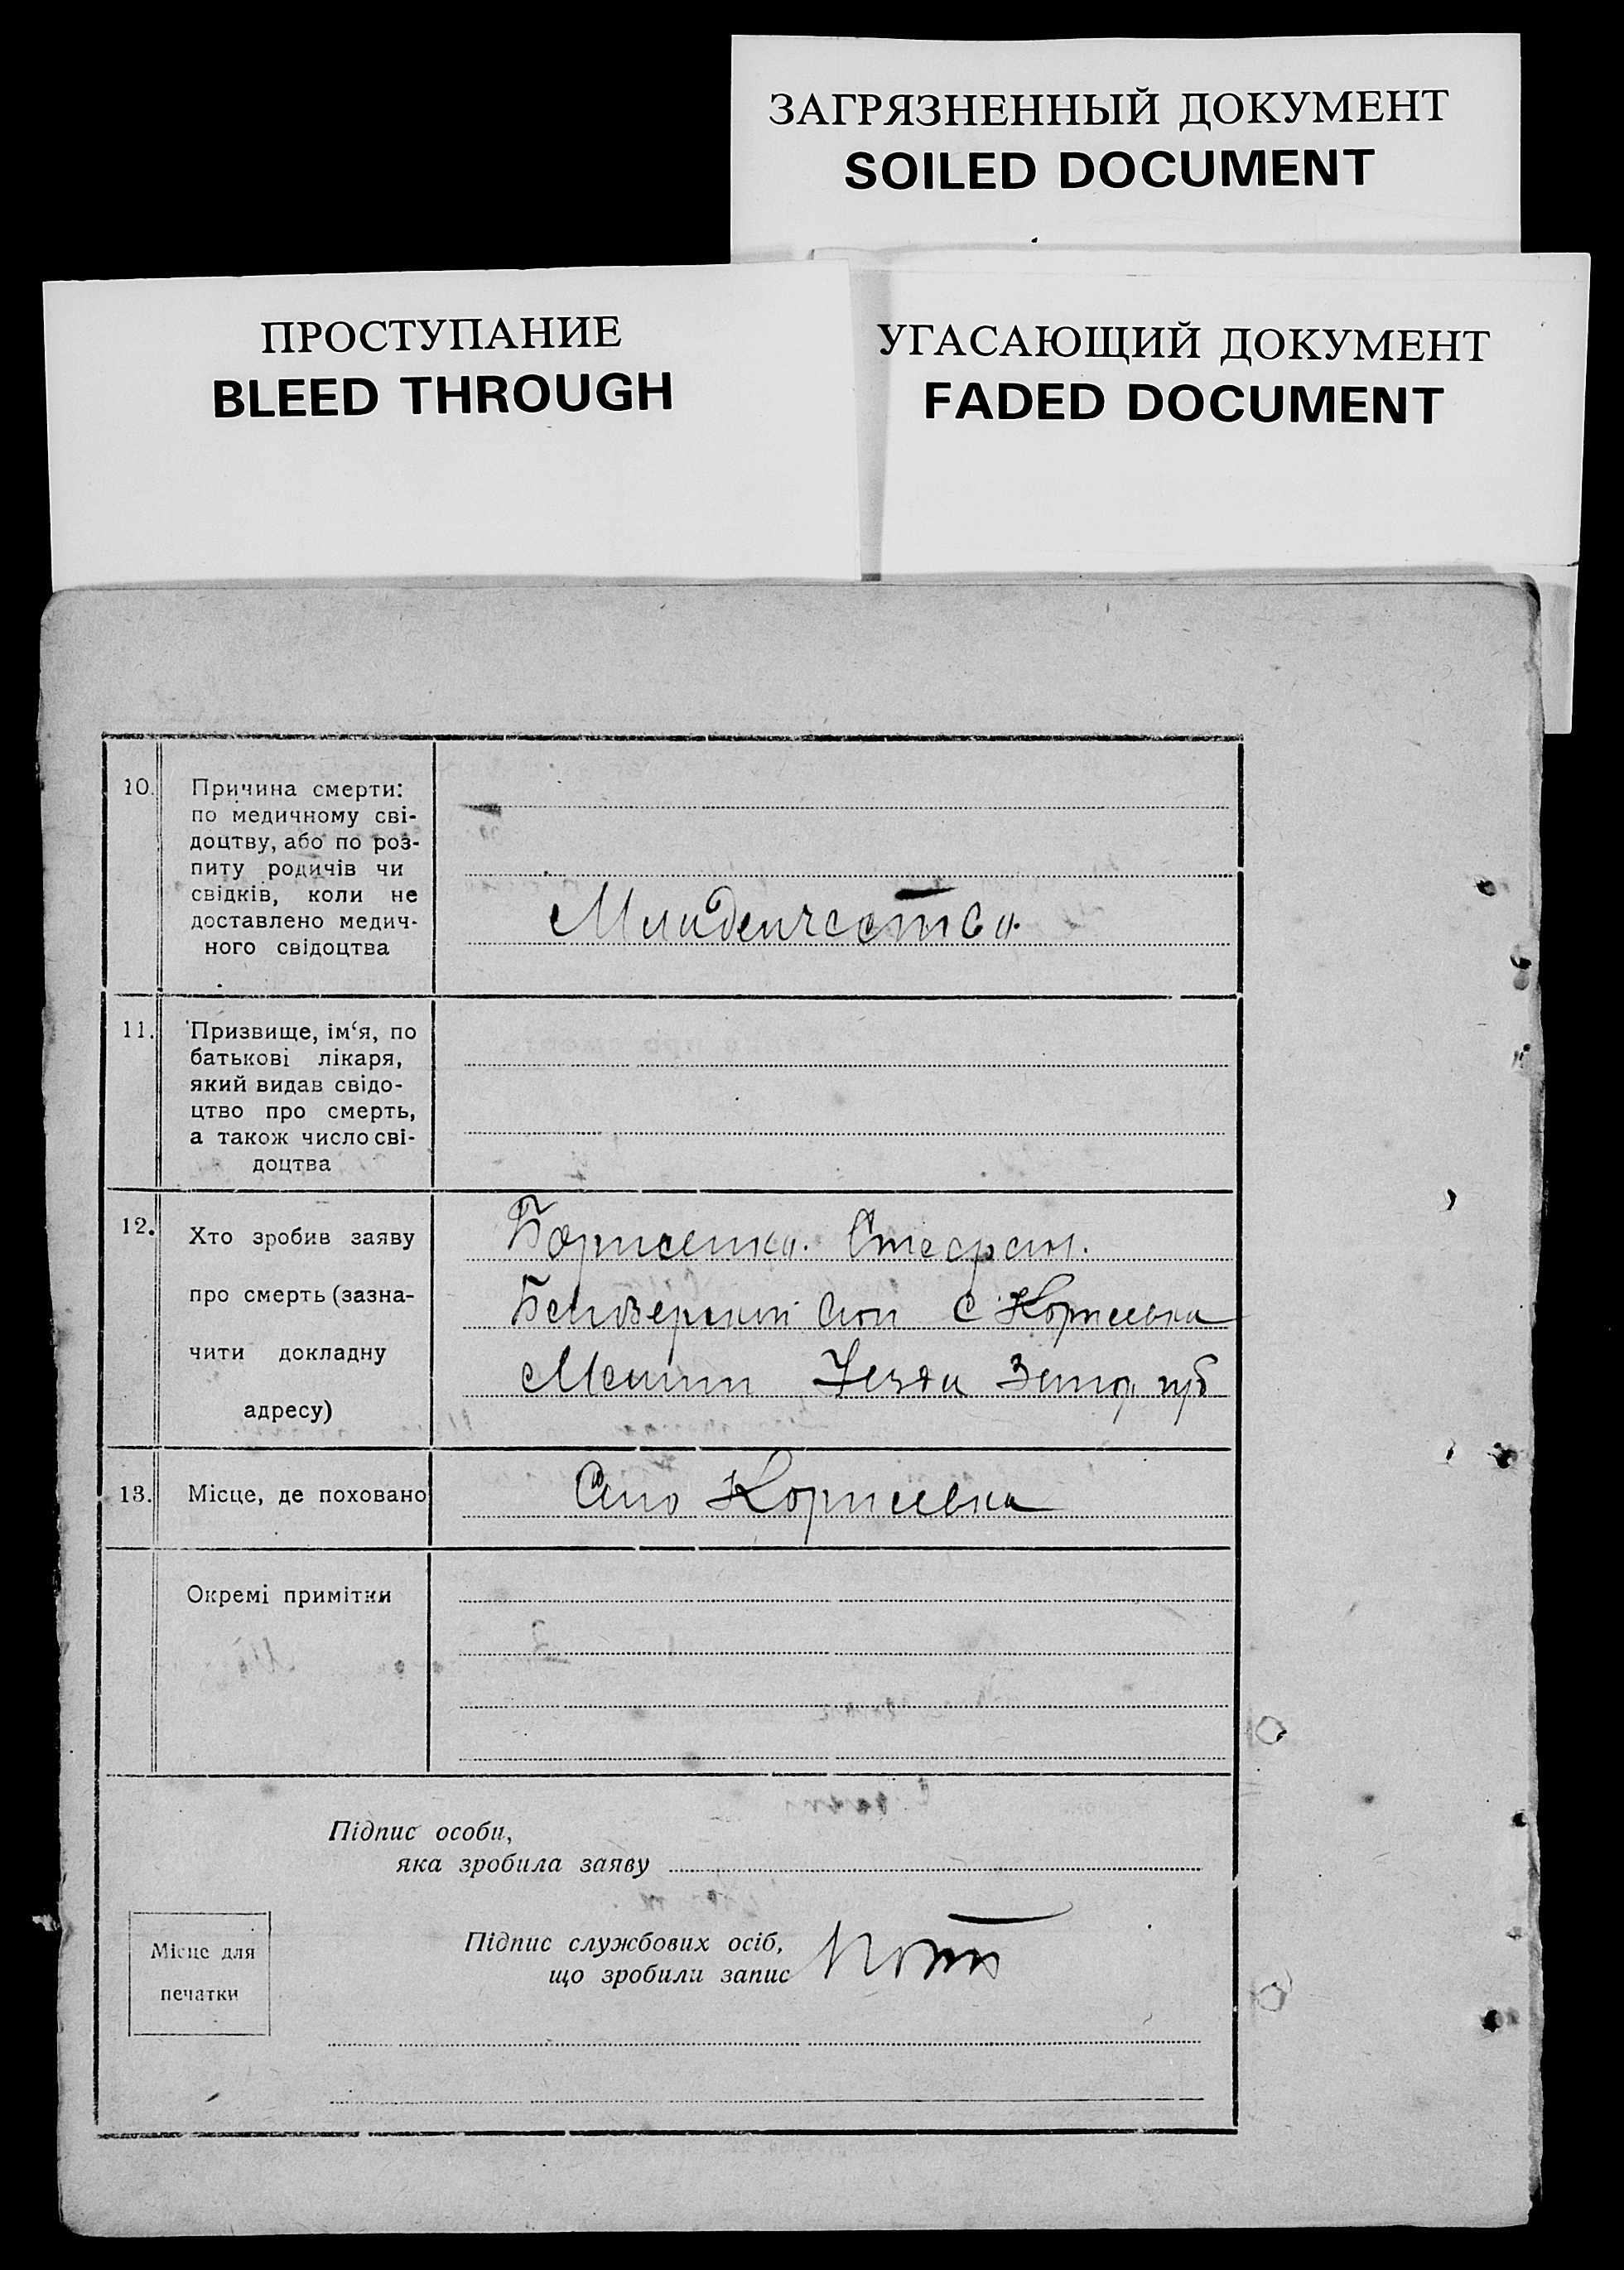 ЗАГРЯЗНЕННЫЙ ДОКУМЕНТ
SOILED DOCUMENT
ПРОСТУПАНИЕ
BLEED THROUGH
УГАСАЮЩИЙ ДОКУМЕНТ
FADED DOCUMENT
10.
Причина смерти:
по медичному сві-
доцтву, або по роз-
питу родичів чи
свідків, коли не
доставлено медич-
ного свідоцтва
Младенчества
11.
Призвище, ім‘я, по
батькові лікаря,
який видав свідо-
цтво про смерть,
а також число сві-
доцтва
12.
Хто зробив заяву
про смерть (зазна-
чити докладну
адресу)
С Корнеевка
Уезда губ
13.
Місце, де поховано
Село Корнеевка
Окремі примітки
Підпис особи,
яка зробила заяву
Підпис службових осіб,
що зробили запис
Місце для
печатки